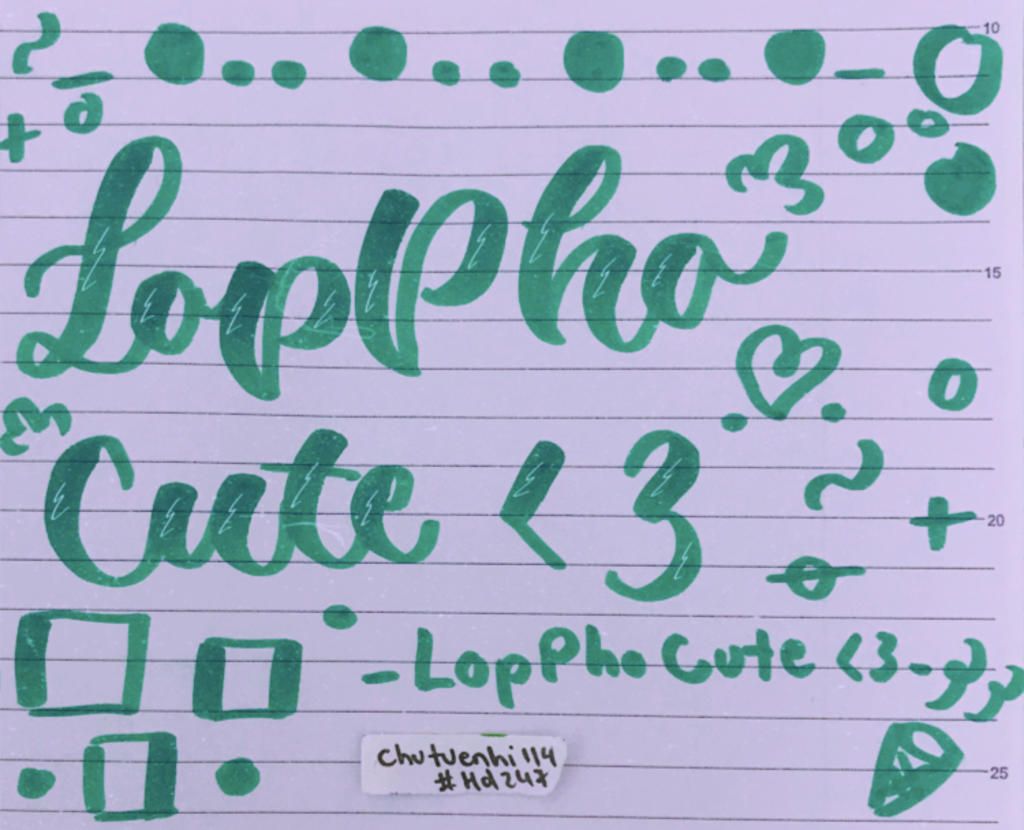 10
LopPho
15
Cute <3
20
- LopPho Cute <3 -
chutuenhi114
#Hd247
25